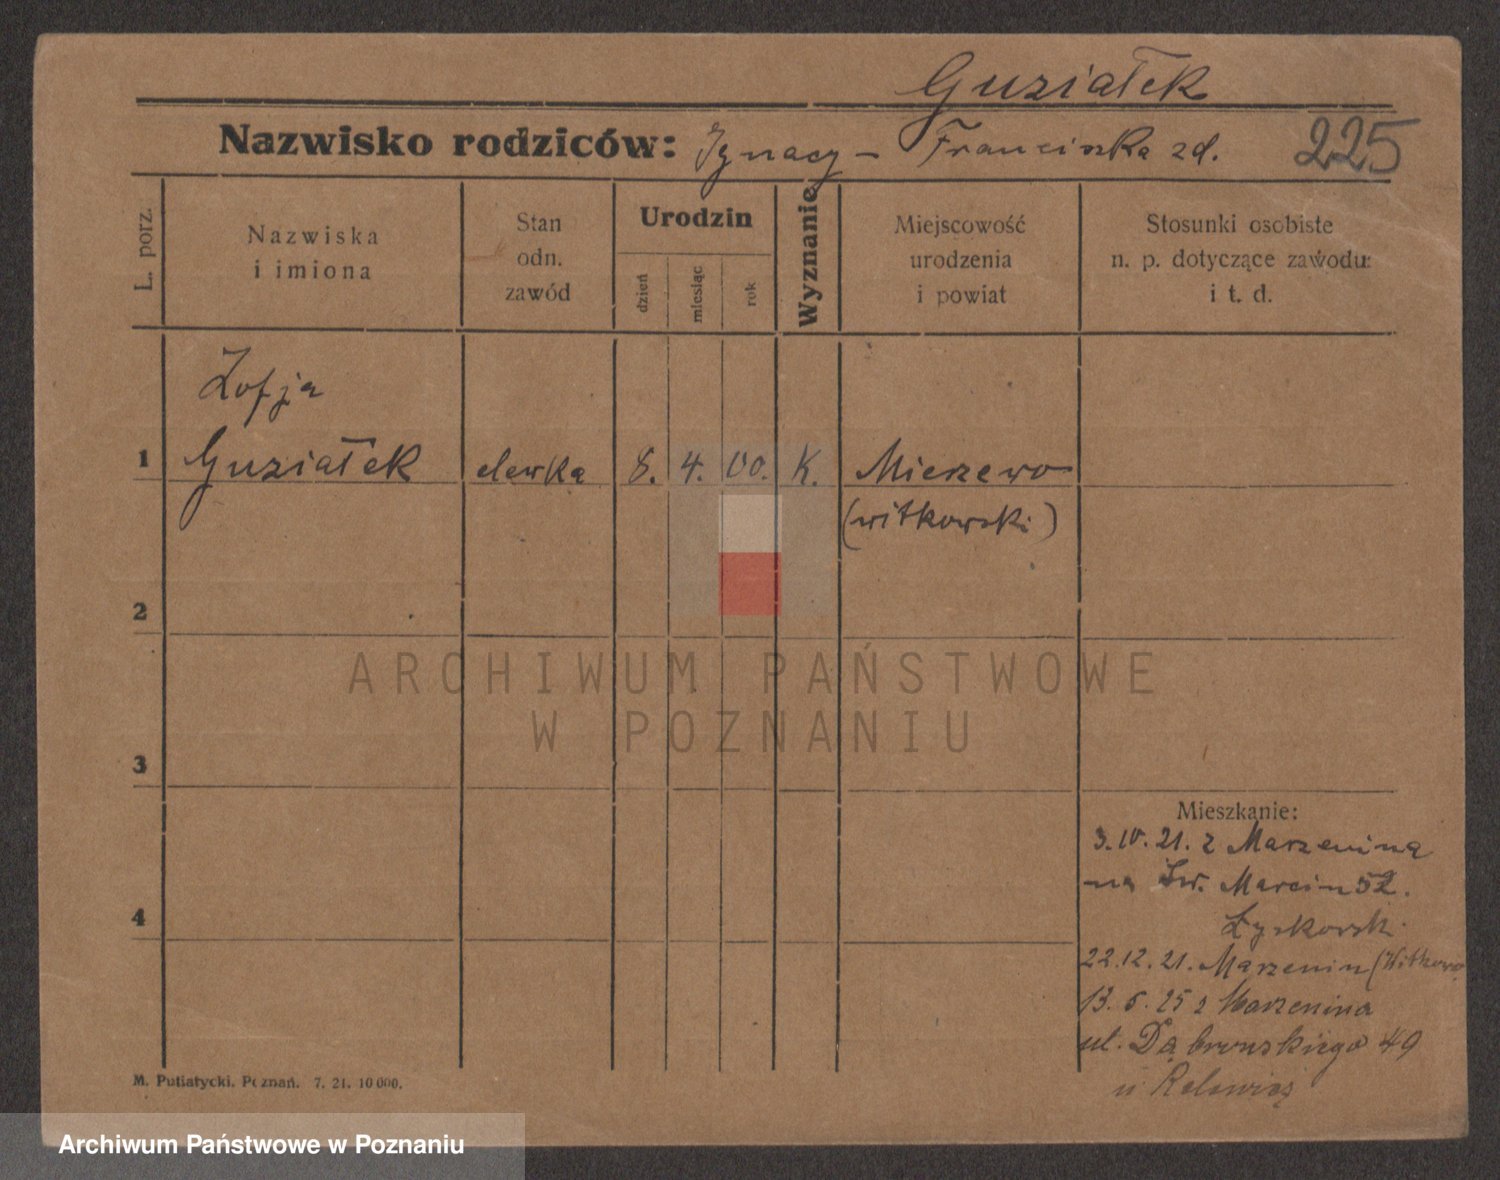 Guziałek
Nazwisko rodziców: Ignacy - Franciszka zd. 225
L. porz.
Nazwiska
i imiona
Stan
odn.
zawód
Urodzin
dzień
miesiąc
rok
Wyznanie
Miejscowość
urodzenia
i powiat
Stosunki osobiste
n. p. dotyczące zawodu:
i t. d.
Zofja
1 Guziałek elewka 8. 4. 00. K. Mierzewo
(witkowski)
2
ARCHIWUM PAŃSTWOWE
W POZNANIU
3
Mieszkanie:
3.10.21. z Marzenina
na Św. Marcin 52.
4
Łyskowski
22.12.21. Marzenin (Witkowo
13.6.25 z Marzenina
ul. Dąbrowskiego 49
u
M. Putiatycki. Poznań. 7. 21. 10 000.
Archiwum Państwowe w Poznaniu